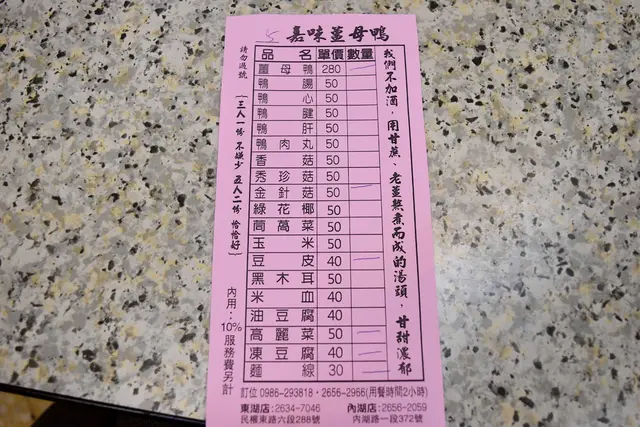 嘉味薑母鴨
品名 單價 數量
薑母鴨 280
鴨腸 50
鴨心 50
鴨腱 50
鴨肝 50
鴨肉丸 50
香菇 50
秀珍菇 50
金針菇 50
綠花椰 50
茼萵菜 50
玉米 50
豆皮 40
黑木耳 50
米血 40
油豆腐 40
高麗菜 50
凍豆腐 40
麵線 30
我們不加酒,用甘蔗、老薑熬煮而成的湯頭,甘甜濃郁
請勿過號
(三人一份 不嫌少 五人二份 恰恰好)
內用:10%服務費另計
訂位 0986-293818・2656-2966(用餐時間2小時)
東湖店:2634-7046 內湖店:2656-2059
民權東路六段288號 內湖路一段372號